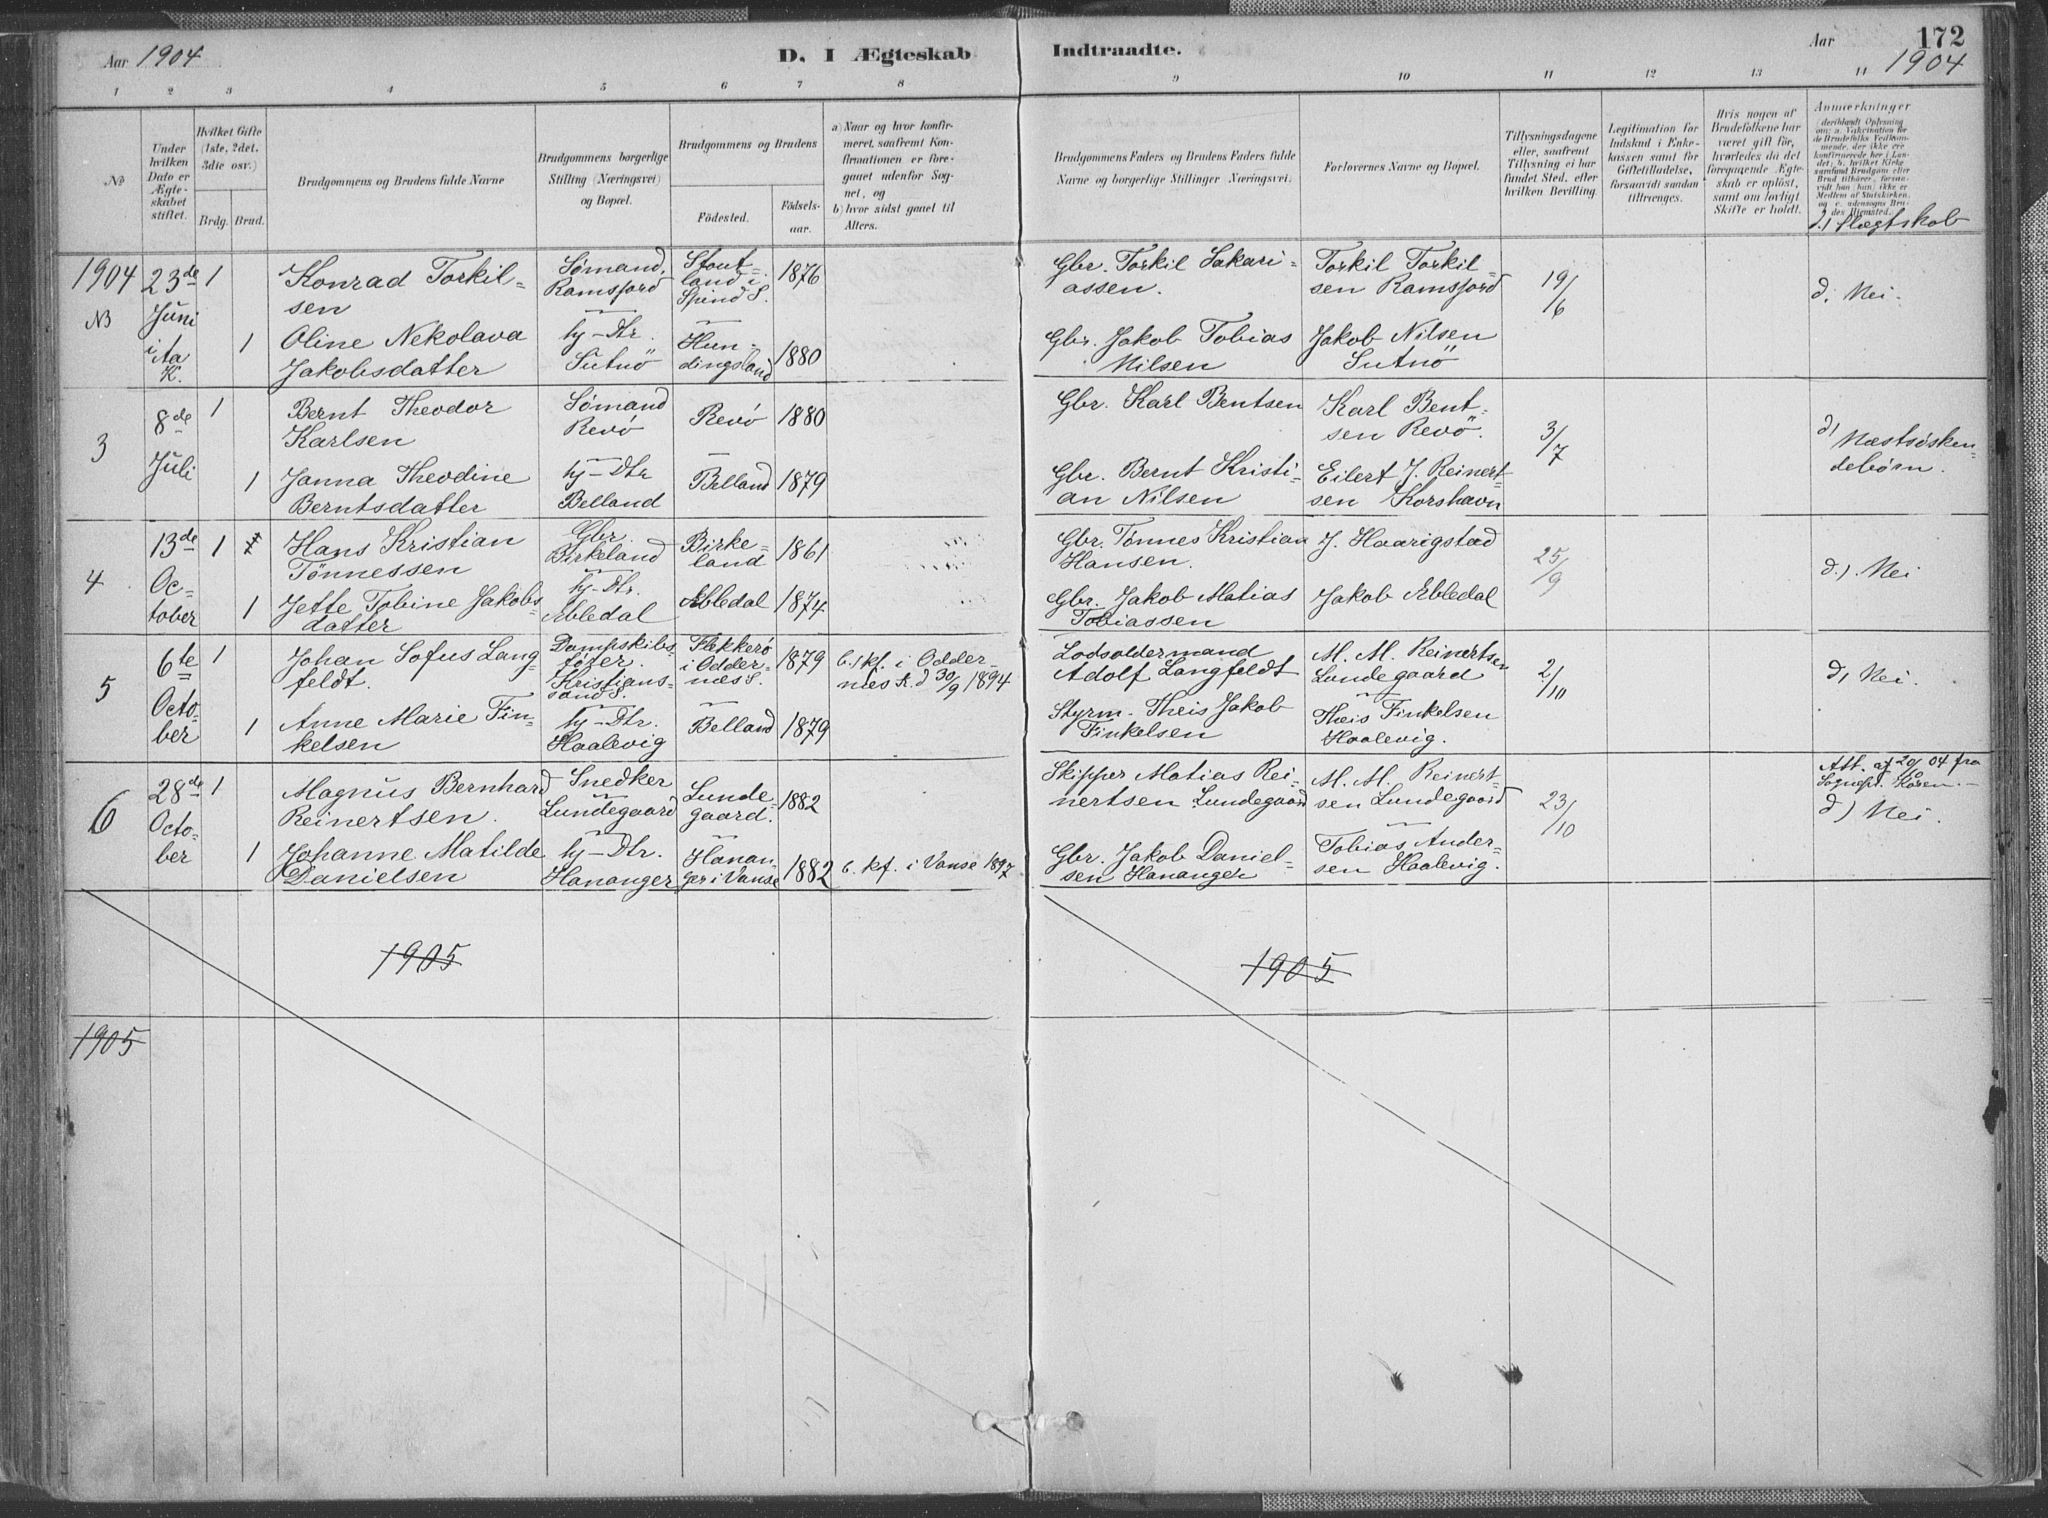 Aar 1904
D. I Ægteskab Indtraadte.
Aar 1904
172
1 2 3 4 5 6 7 8 9 10 11 12 13 14
No
Under hvilken Dato er Ægteskabet stiftet.
Hvilket Gifte (1ste, 2det, 3die osv.)
Brdg. Brud.
Brudgommens og Brudens fulde Navne
Brudgommens borgerlige Stilling (Næringsvei) og Bopæl.
Brudgommens og Brudens
Fødested.
Fødselsaar.
a) Naar og hvor konfirmeret, saafremt Konfirmationen er foregaaet udenfor Sognet, og
b) hvor sidst gaaet til Alters.
Brudgommens Faders og Brudens Faders fulde Navne og borgerlige Stillinger (Næringsvei).
Forlovernes Navne og Bopæl.
Tillysningsdagene eller, saafremt Tillysning ei har fundet Sted, efter hvilken Bevilling.
Legitimation for Indskud i Enkekassen samt for Giftetilladelse, forsaavidt saadan tiltrænges.
Hvis nogen af Brudefolkene har været gift før, hvorledes da det foregaaende Ægteskab er opløst, samt om lovligt Skifte er holdt.
Anmerkninger
deriblandt Oplysning om: a. Vakcination for de Brudefolks Vedkommende, der ikke ere konfirmerede her i Landet; b. hvilket Kirkesamfund Brudgom eller Brud tilhører, forsaavidt han/hun ikke er Medlem af Statskirken, og c. udensogns Brudes Hjemsted.
d.) Slægtskab
1904
NB
23de Juni i Aa K.
1
Konrad Torkilsen
Sømand, Ramsfjord
Stoutland i Spind S.
1876
Gbr. Torkil Sakariassen.
Torkil Torkilsen Ramsfjord
19/6
d. Nei.
1
Oline Nekolava Jakobsdatter
hj-Dtr. Sutnö
Hundingsland
1880
Gbr. Jakob Tobias Nilsen
Jakob Nilsen Sutnö
3
8de Juli
1
Bernt Theodor Karlsen
Sømand Revø
Revø
1880
Gbr. Karl Bentsen
Karl Bentsen Revö.
3/7
d) Næstsøskendebørn.
1
Janna Theodine Berntsdatter
hj-Dtr Belland
Belland
1879
Gbr. Bernt Kristian Nilsen
Eilert J. Reinertsen Korshavn
4
13de October
1
Hans Kristian Tönnessen
Gbr. Birkeland
Birkeland
1861
Gbr. Tønnes Kristian Hansen.
J. Haarigstad
25/9
d.). Nei
1
Jette Tobine Jakobsdatter
hj-Dtr. Abledal
Abledal
1874
Gbr. Jakob Matias Tobiassen
Jakob Abledal
5
6te October
1
Johan Sofus Langfeldt.
Dampskibsfører. Kristianssand S.
Flekkerø i Oddernæs S.
1879
b.) kf. i Oddernæs K. d 30/9 1894
Lodsoldermand Adolf Langfeldt
M. M. Reinertsen Lundegaard
2/10
d) Nei.
1
Anne Marie Finkelsen
hj-Dtr. Haalevig
Belland
1879
Styrm. Theis Jakob Finkelsen
Theis Finkelsen Haalevig.
6
28de October
1
Magnus Bernhard Reinertsen.
Snedker Lundegaard
Lundegaard.
1882
Skipper Matias Reinertsen Lundegaard
M. M. Reinertsen Lundegaard
23/10
Att. af 20/10 04 fra Sognepr. Kören.
d) Nei.
1
Johanne Matilde Danielsen
hj-Dtr. Hananger
Hananger i Vanse
1882
b. kf. i Vanse 1897
Gbr. Jakob Danielsen Hananger
Tobias Andersen Haalevig.
1905
1905
1905